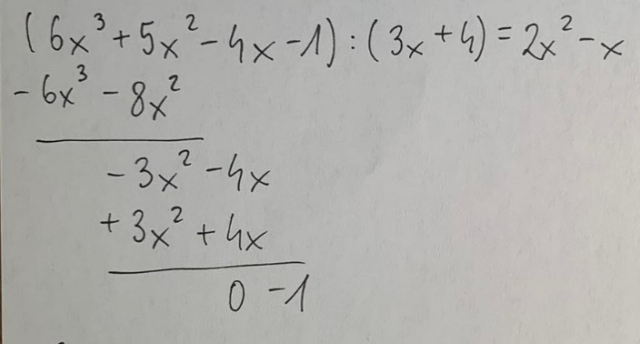 (6x³+5x²-4x-1):(3x+4)=2x²-x
-6x³-8x²
-3x²-4x
+3x²+4x
0-1